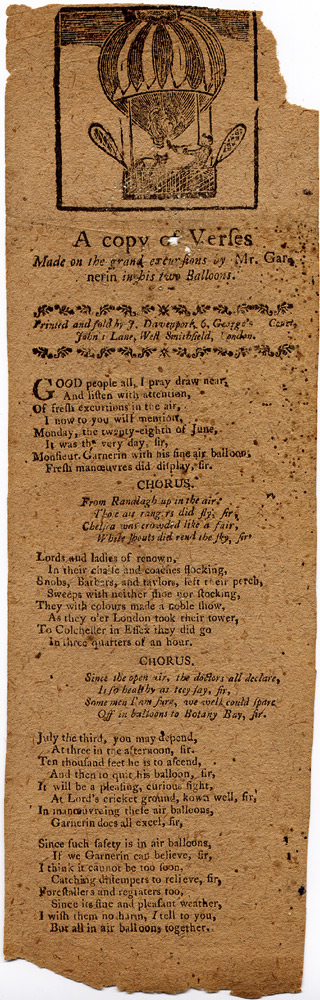 A copy of Verſes
Made on the grand excurſions by Mr. Gar-
nerin in his two Balloons.
Printed and ſold by J. Davenport, 6, George's Court,
John's Lane, Weſt Smithfield, London.
GOOD people all, I pray draw near,
And liſten with attention,
Of freſh excurtions in the air,
I now to you will mention,
Monday, the twenty-eighth of June,
It was the very day, ſir,
Monſieur Garnerin with his fine air balloon,
Freſh manœuvres did diſplay, ſir.
CHORUS.
From Ranalagh up in the air,
Thoſe air rangers did fly, ſir,
Chelſea was crowded like a fair,
While ſhouts did rend the ſky, ſir,
Lords and ladies of renown,
In their chaiſe and coaches flocking,
Snobs, Barbars, and taylors, left their perch,
Sweeps with neither ſhoe nor ſtocking,
They with colours made a noble ſhow,
As they o'er London took their tower,
To Colcheſter in Eſſex they did go
In three quarters of an hour.
CHORUS.
Since the open air, the doctors all declare,
Is ſo healthy as they ſay, ſir,
Some men I'm ſure, we well could ſpare
Off in balloons to Botany Bay, ſir.
July the third, you may depend,
At three in the afternoon, ſir.
Ten thouſand feet he is to aſcend,
And then to quit his balloon, ſir,
It will be a pleaſing, curious ſight,
At Lord's cricket ground, kown well, ſir,
In manœuvreing theſe air balloons,
Garnerin does all excel, ſir,
Since ſuch ſafety is in air balloons,
If we Garnerin can believe, ſir,
I think it cannot be too ſoon,
Catching diſtempers to relieve, ſir,
Foreſtallers and regraters too,
Since its fine and pleaſant weather,
I wiſh them no harm, I tell to you,
But all in air balloons together.